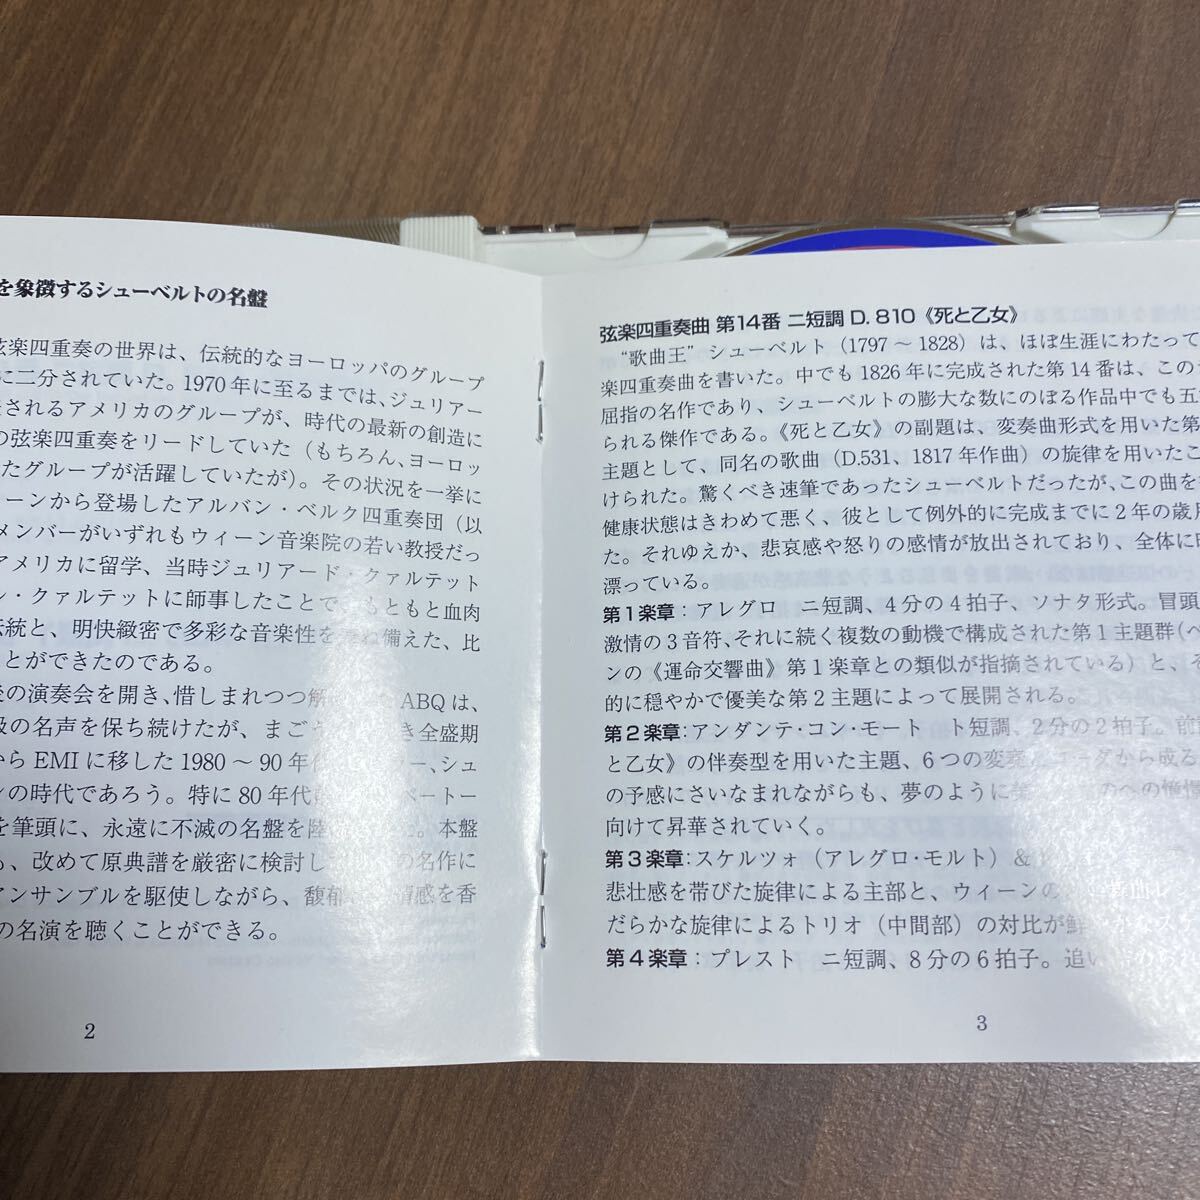 を象徴するシューベルトの名盤
弦楽四重奏の世界は、伝統的なヨーロッパのグループ
に二分されていた。1970年に至るまでは、ジュリアー
されるアメリカのグループが、時代の最新の創造に
の弦楽四重奏をリードしていた（もちろん、ヨーロッ
たグループが活躍していたが）。その状況を一挙に
ィーンから登場したアルバン・ベルク四重奏団（以
メンバーがいずれもウィーン音楽院の若い教授だっ
アメリカに留学、当時ジュリアード・クァルテット
ン・クァルテットに師事したことで、もともと血肉
伝統と、明快緻密で多彩な音楽性を兼ね備えた、比
ことができたのである。
の演奏会を開き、惜しまれつつ解 ABQは、
級の名声を保ち続けたが、まご き全盛期
からEMIに移した1980～90年代 シュ
ンの時代であろう。特に80年代 ベートー
を筆頭に、永遠に不滅の名盤を 。本盤
も、改めて原典譜を厳密に検討し の名作に
アンサンブルを駆使しながら、馥郁 情感を香
の名演を聴くことができる。
2
弦楽四重奏曲 第14番 ニ短調 D. 810《死と乙女》
“歌曲王”シューベルト（1797～1828）は、ほぼ生涯にわたって
楽四重奏曲を書いた。中でも1826年に完成された第14番は、この
屈指の名作であり、シューベルトの膨大な数にのぼる作品中でも五
られる傑作である。《死と乙女》の副題は、変奏曲形式を用いた第
主題として、同名の歌曲（D.531、1817年作曲）の旋律を用いたこ
けられた。驚くべき速筆であったシューベルトだったが、この曲を
健康状態はきわめて悪く、彼として例外的に完成までに2年の歳月
た。それゆえか、悲哀感や怒りの感情が放出されており、全体に
漂っている。
第1楽章：アレグロ　ニ短調、4分の4拍子、ソナタ形式。冒頭
激情の3音符、それに続く複数の動機で構成された第1主題群（ベ
ンの《運命交響曲》第1楽章との類似が指摘されている）と、そ
的に穏やかで優美な第2主題によって展開される。
第2楽章：アンダンテ・コン・モート　ト短調、2分の2拍子。前
と乙女》の伴奏型を用いた主題、6つの変奏 ーダから成る
の予感にさいなまれながらも、夢のように のへの憧憬
向けて昇華されていく。
第3楽章：スケルツォ（アレグロ・モルト）＆
悲壮感を帯びた旋律による主部と、ウィーンの 舞曲
だらかな旋律によるトリオ（中間部）の対比が鮮
第4楽章：プレスト　ニ短調、8分の6拍子。追い
3